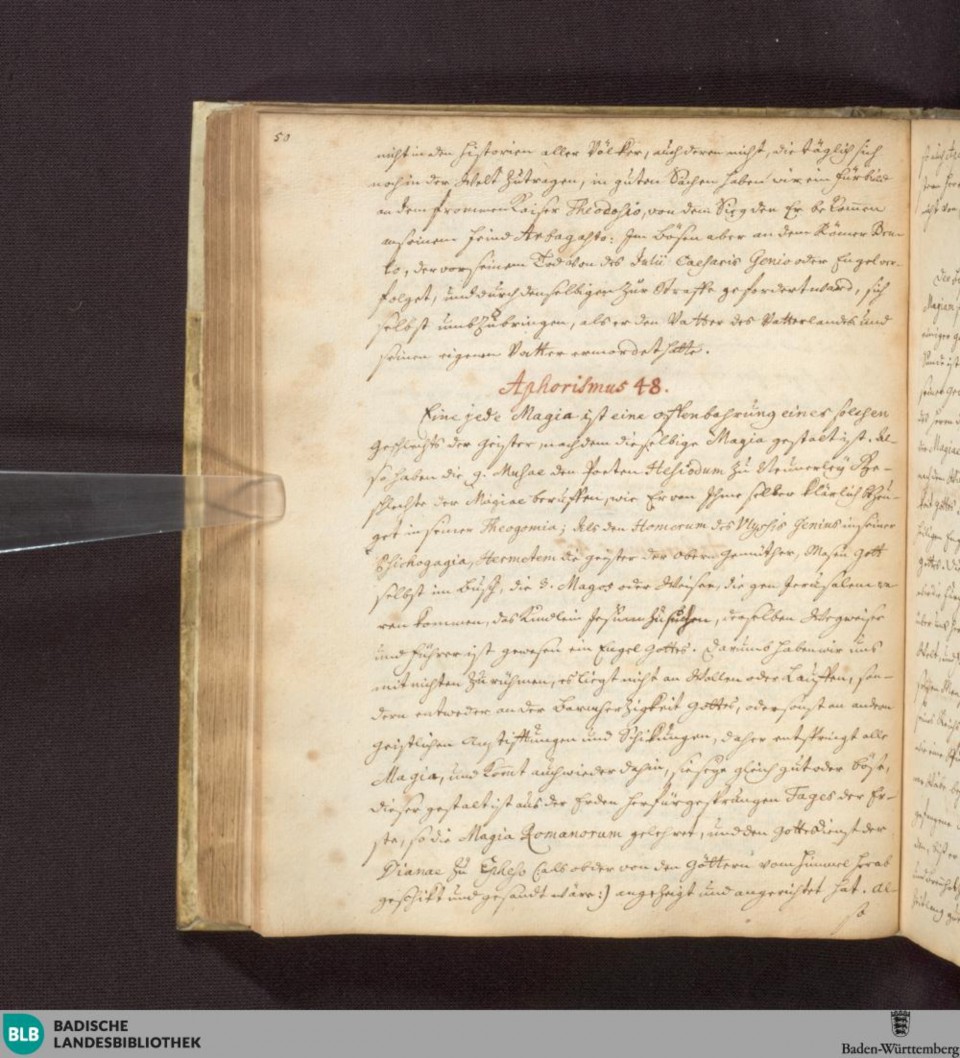 50
nicht in den Historien aller Völcker, auch deren nicht, die täglich sich
noch in der Welt zutragen, in guten Sachen haben wir ein fürbild
an dem frommen Kaiser Theodosio, von dem Sieg den Er bekommen
an seinem feind Arbagasto: Im bösen aber an dem Römer Bru-
to, der vor seinem Tod von des Julii Caesaris Genio oder Engel ver-
folget, und durch denselbigen zur Straffe gefordert ward, sich
selbst umbzubringen, als er den Vatter des Vatterlandes und
seinen eigenen Vatter ermordet hatte.
Aphorismus 48.
Eine jede Magia ist eine offenbahrung eines solchen
geschlechts der Geister, nach dem dieselbige Magia gestalt ist. Al-
so haben die 9. Musae den Poeten Hesiodum zu Neunerley Ge-
schlechte der Magiae beruffen, wie Er von Ihme selber klärlich Zeu-
get in seiner Theogomia; Als den Homerum des Ulyssis Genius in seiner
Psichogagia, Hermetem die geister der obern Gemüther, Mosen Gott
selbst im Busch, die 3. Magos oder Weisen, die gen Jerusalem wa-
ren kommen, das Kindlein Jesum zu suchen, derselben Wegweiser
und führer ist gewesen ein Engel Gottes. Darumb haben wir uns
mit nichten zu rühmen, es liegt nicht an Wollen oder Lauffen, son-
dern entweder an der Barmherzigkeit Gottes, oder sonst an andern
geistlichen Anstifftungen und Schikungen, daher entspringt alle
Magia, und komt auch wieder dahin, sie seye gleich gut oder böse,
dieser gestalt ist aus der Erden herfür gesprungen Tages der Er-
ste, so die Magia Romanorum gelehret, und den Gottesdienst der
Dianae zu Epheso (als ob der von den Göttern vom Himmel herab
geschikt und gesandt wäre:) angezeigt und angerichtet hat. Al-
so
BLB
BADISCHE
LANDESBIBLIOTHEK
Baden-Württemberg